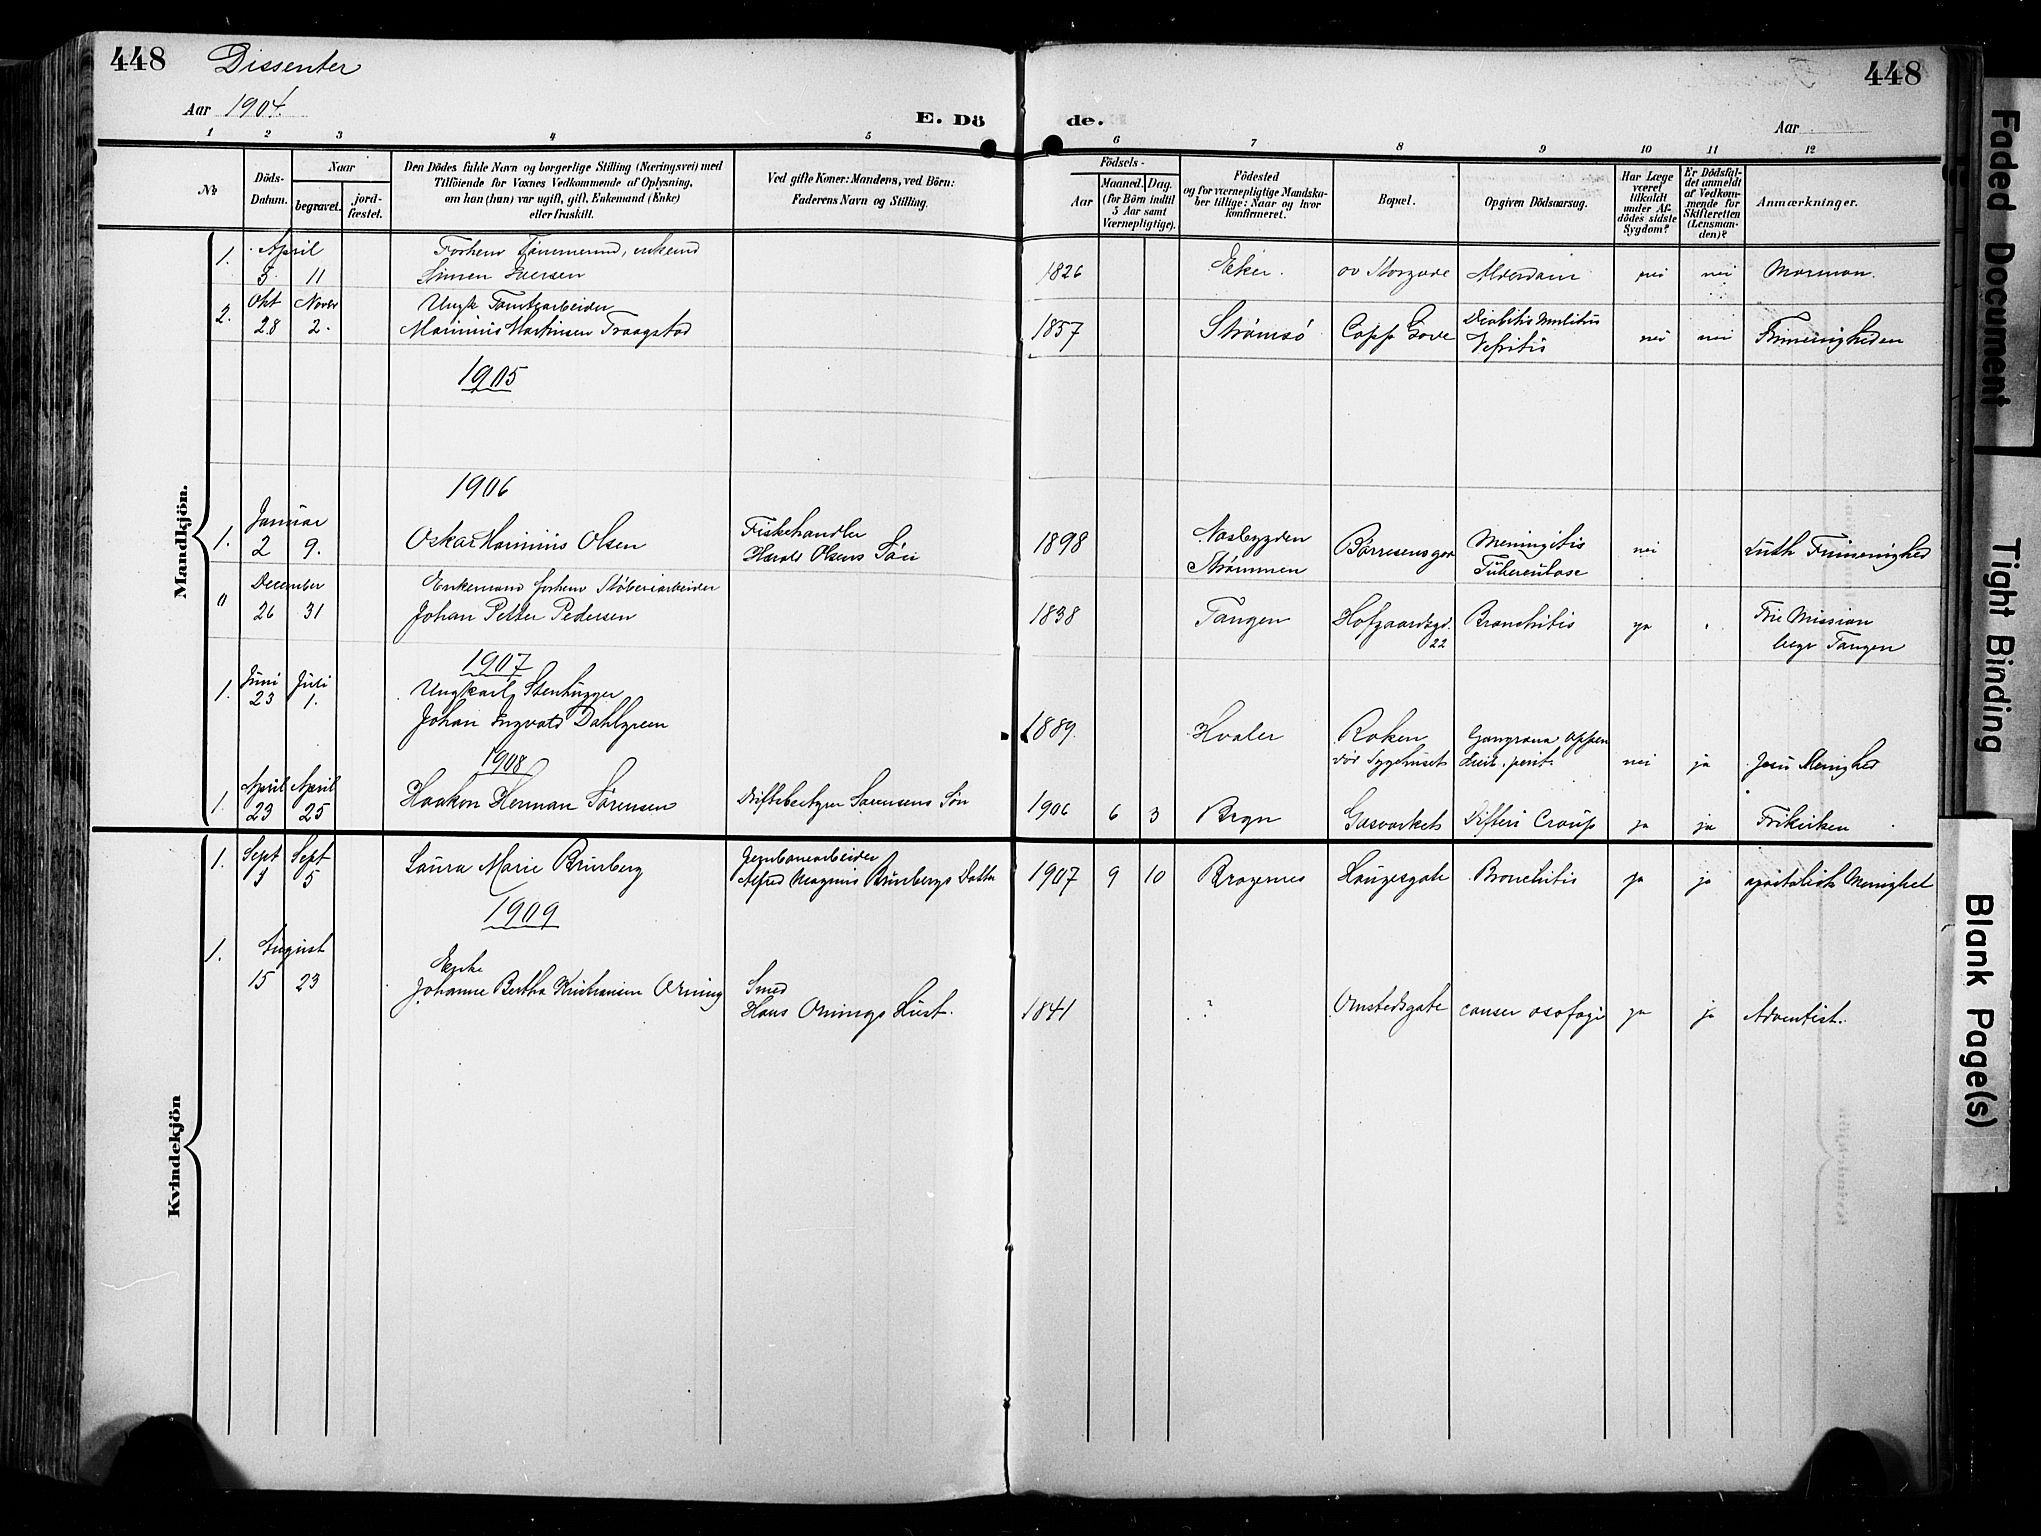 448 Dissenter 448
Aar 1904. E. Dö de. Aar
1 2 3 4 5 6 7 8 9 10 11 12
No
Döds-Datum.
Naar
begravet.
jord-fæstet.
Den Dödes fulde Navn og borgerlige Stilling (Næringsvei) med
Tilföiende for Voxnes Vedkommende af Oplysning,
om han (hun) var ugift, gift, Enkemand (Enke)
eller fraskilt.
Ved gifte Koner: Mandens, ved Börn:
Faderens Navn og Stilling.
Födsels-
Aar
Maaned. Dag.
(for Börn indtil
5 Aar samt
Værnepligtige).
Födested
og for værnepligtige Mandska-
ber tillige: Naar og hvor
konfirmeret.
Bopæl.
Opgiven Dödsaarsag.
Har Læge
været
tilkaldt
under Af-
dödes sidste
Sygdom?
Er Dödsfal-
det anmeldt
af Vedkom-
mende for
Skifteretten
(Lensman-
den)?
Anmærkninger.
Mandkjön.
1. April
5 11 Simen Iversen 1826 Eker. ov Storgade nei nei Mormon.
2. Okt Novbr
28 2. Marinius Martinsen 1857 Strømsø nei nei
Nefritis
1905
1906
Januar
1. 2 9. Oskar Marinius Olsen
Fiskehandler
Harald Olsens Søn
1898
Strømmen
Meningitis
Tuberculose
nei
Luth Frimenighed
December
26 31
Enkemand forhenv Støberiarbeider
Johan Petter Pedersen
1838 Tangen Hofgaardsgd.
22
Bronchitis ja
Fri Mission
begr Tangen
1907
1. Juni Juli
23 1.
Ungkarl Stenhugger
Johan Ingvald Dahlgreen
1889. Hvaler Røken
Sygehuset
nei ja Jesu Menighed
1908
1. April April
23 25 Haakon Herman Sørensen Sørensens Søn
1906 6 3 Bragn Gasværket Difteri Croup ja ja Frikirken
Kvindekjön
1. Sept Sept
5
Laura Marie Brunberg
Jernbanearbeider
Alfred Magnus Brunbergs Datter
1907 9 10 Bragernes Haugesgate Bronchitis ja ja apostolisk Menighet
1909
1. August
15 23
Johanne Bertha Kristiansen Orning
Smed
Hans Ornings Hust.
1841 ? ja ja Adventist.
Faded Document
Tight Binding
Blank Page(s)